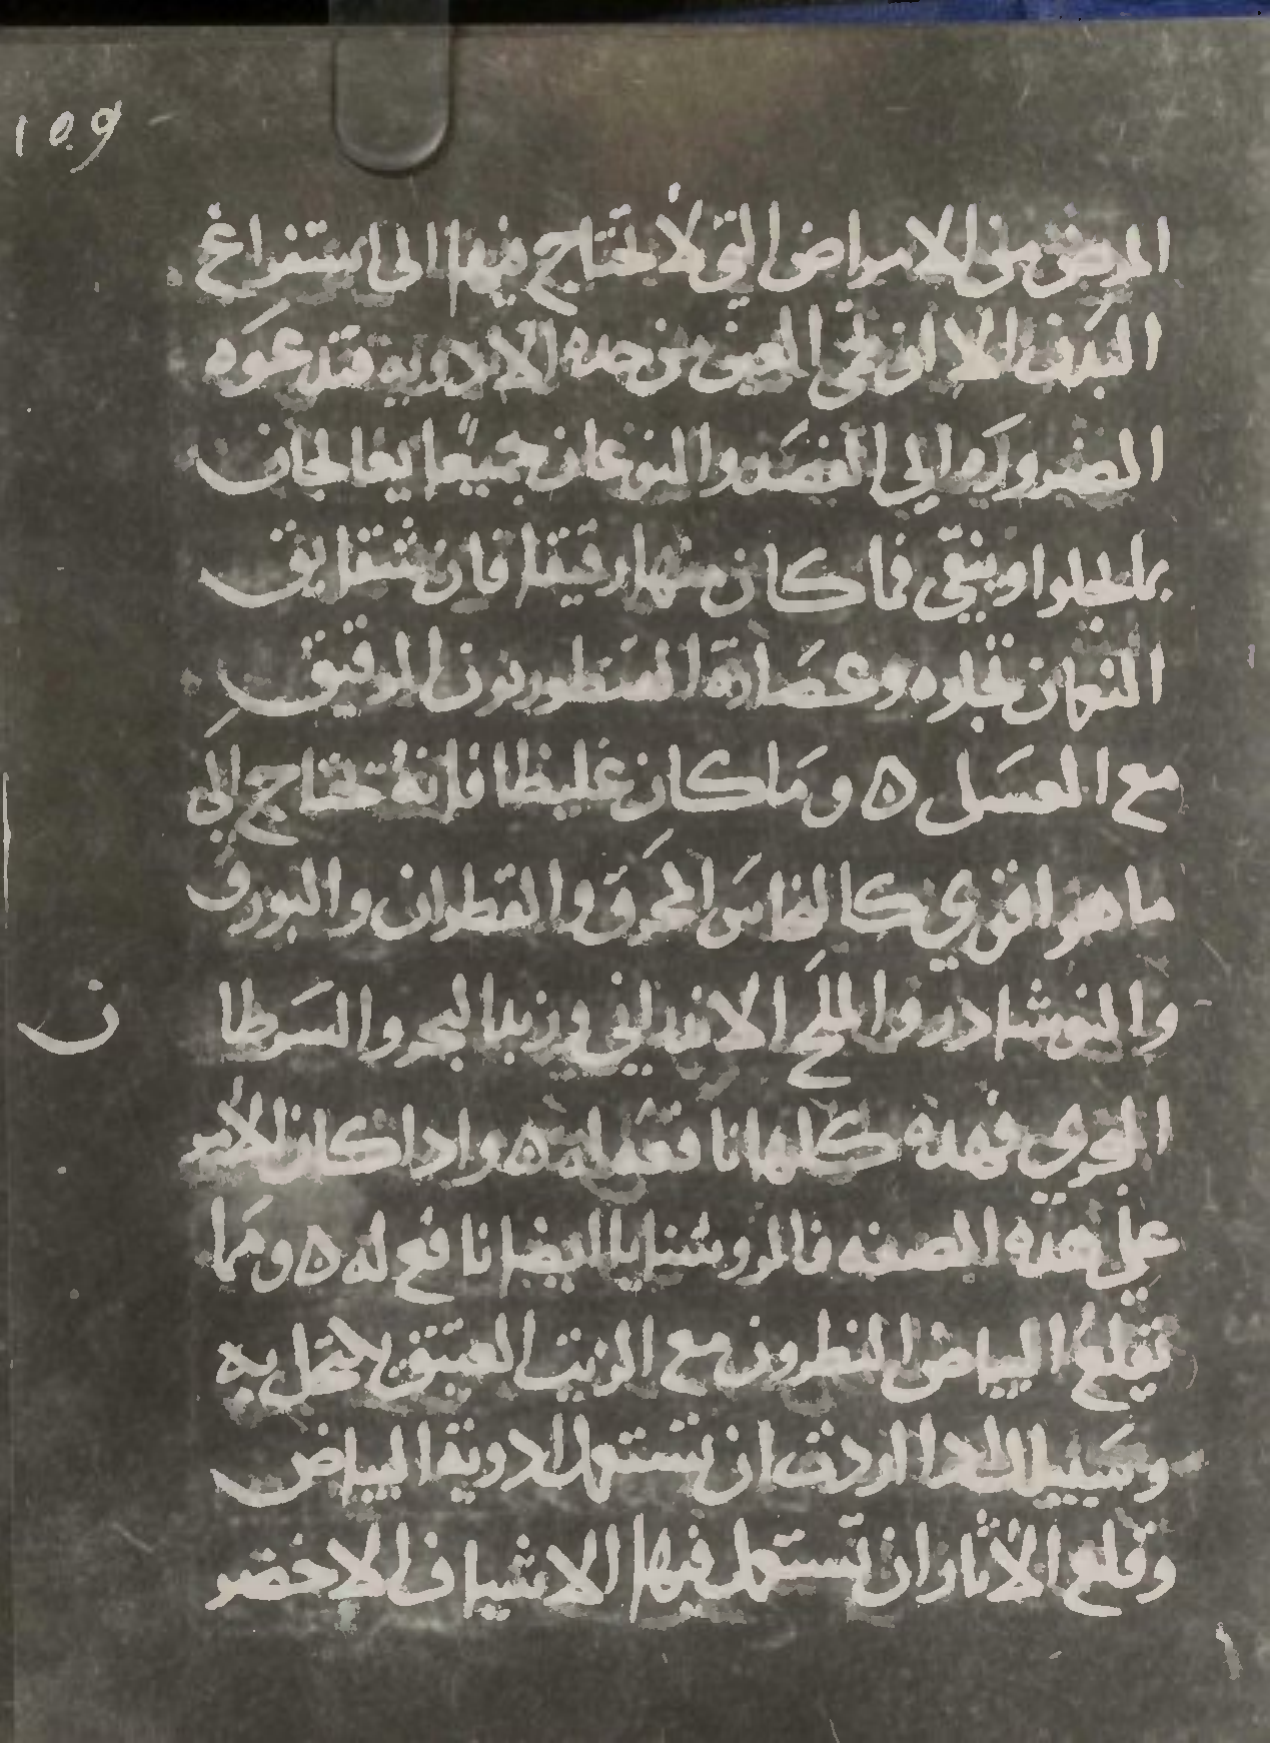 ١٥٩
المرض من الامراض التي لا تحتاج فيها الى استفراغ
البدن الا ان تحمى العين من هذه الادوية فتدعوه
الضروره الى الفصد والنوعان جميعا يعالجان
بما يجلوا وينقي فما كان منها رقيقا فان شقايق
النعمان تجلوه وعصارة القنطوريون الدقيق
مع العسل ه وما كان غليظا فانه يحتاج الى
ما هو اقوى كالنحاس المحرق والقطران والبورق
والنوشادر والملح الاندراني وزبد البحر والسرطا
ن
البحري فهذه كلها نافعة له ه واذا كان الاثر
على هذه الصفه فالروشنايا ايضا نافع له ه ومما
يقلع البياض النطرون مع الزيت العتيق يكتحل به
وسبيلك اذا اردت ان تستعمل ادوية البياض
وقلع الاثار ان تستعمل فيها الاشياف الاخضر